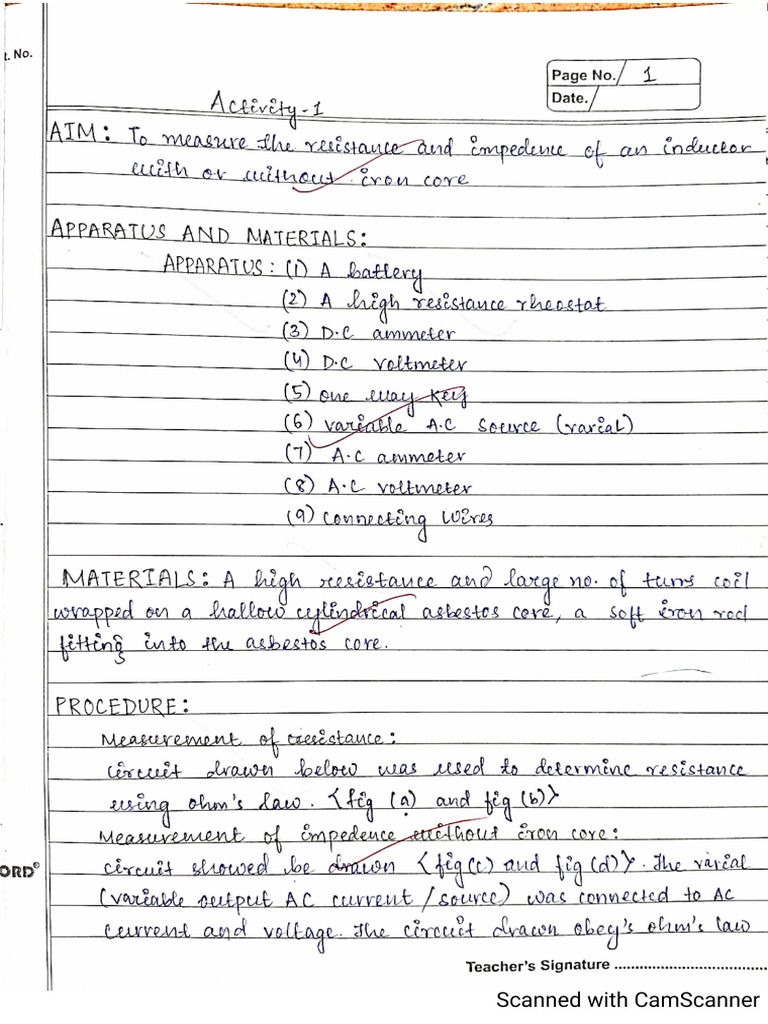 t. No.
Page No. 1
Date.
Activity-1
AIM: To measure the resistance and impedence of an inductor
with or without iron core
APPARATUS AND MATERIALS:
APPARATUS: (1) A battery
(2) A high resistance rheostat
(3) D.C ammeter
(4) D.C voltmeter
(5) one way key
(6) variable A.C source (varial)
(7) A.C ammeter
(8) A.C voltmeter
(9) connecting wires
MATERIALS: A high resistance and large no. of turns coil
wrapped on a hallow cylindrical asbestos core, a soft iron rod
fitting into the asbestos core.
PROCEDURE:
Measurement of resistance:
circuit drawn below was used to determine resistance
using ohm's law. {fig (a) and fig (b)}
Measurement of impedence without iron core:
circuit showed be drawn {fig(c) and fig (d)}. The varial
(variable output AC current/source) was connected to AC
current and voltage. The circuit drawn obey's ohm's law
ORD
Teacher's Signature
Scanned with CamScanner